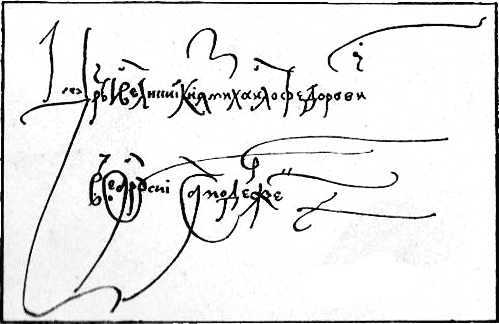 Црь И великиі Кнꙗзь михаило федорович
всеа русиі самодержец